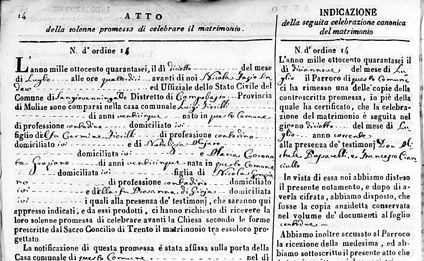 14
ATTO
della solenne promessa di celebrare il matrimonio.
N. d'ordine 14
L'anno mille ottocento quarantasei, il dì diciotto del mese
di Luglio alle ore quattordici avanti di noi Nicola
ed Uffiziale dello Stato Civile del
Comune di Sangiovanni Distretto di Campobasso Provincia
di Molise sono comparsi nella casa comunale Luigi Fiorilli
di anni venticinque nato in questo comune
di professione contadino domiciliato ivi
figlio di fu Carmine Fiorilli di professione contadino
domiciliato ivi e di Natalizia
domiciliata ivi e Maria Corona
Graziano di anni venticinque nata in questo Comune
domiciliata ivi figlia di Nicola
di professione contadino domiciliato
ivi e della fu domiciliata
ivi i quali alla presenza de' testimonj, che saranno qui
appresso indicati, e da essi prodotti, ci hanno richiesto di ricevere la
loro solenne promessa di celebrare avanti la Chiesa secondo le forme
prescritte dal Sacro Concilio di Trento il matrimonio tra essoloro pro-
gettato.
La notificazione di questa promessa è stata affissa sulla porta della
Casa comunale di questo Comune
INDICAZIONE
della seguita celebrazione canonica
del matrimonio
N. d'ordine 14
L'anno mille ottocento quarantasei
il dì diciannove del mese di Lu
glio il Parroco di questo Comune
ci ha rimesso una delle copie della
controscritta promessa, in piè della
quale ha certificato, che la celebra-
zione del matrimonio è seguita nel
giorno diciotto del mese di Lu
glio anno corrente
alla presenza de' testimonj Don Mi
chele Paparelli e Francesco Cian
ciullo
In vista di essa noi abbiamo disteso
il presente notamento, e dopo di a-
verla cifrata, abbiamo disposto, che
fosse la copia anzidetta conservata
nel volume de' documenti al foglio
centodue
Abbiamo inoltre accusato al Parroco
la ricezione della medesima, ed ab-